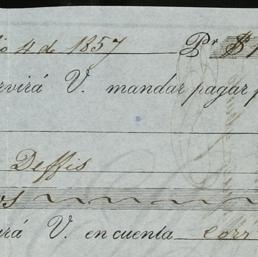 4 de 1857 Pr. $
rvirá V. mandar pagar p
Deffis
rá V. en cuenta corr